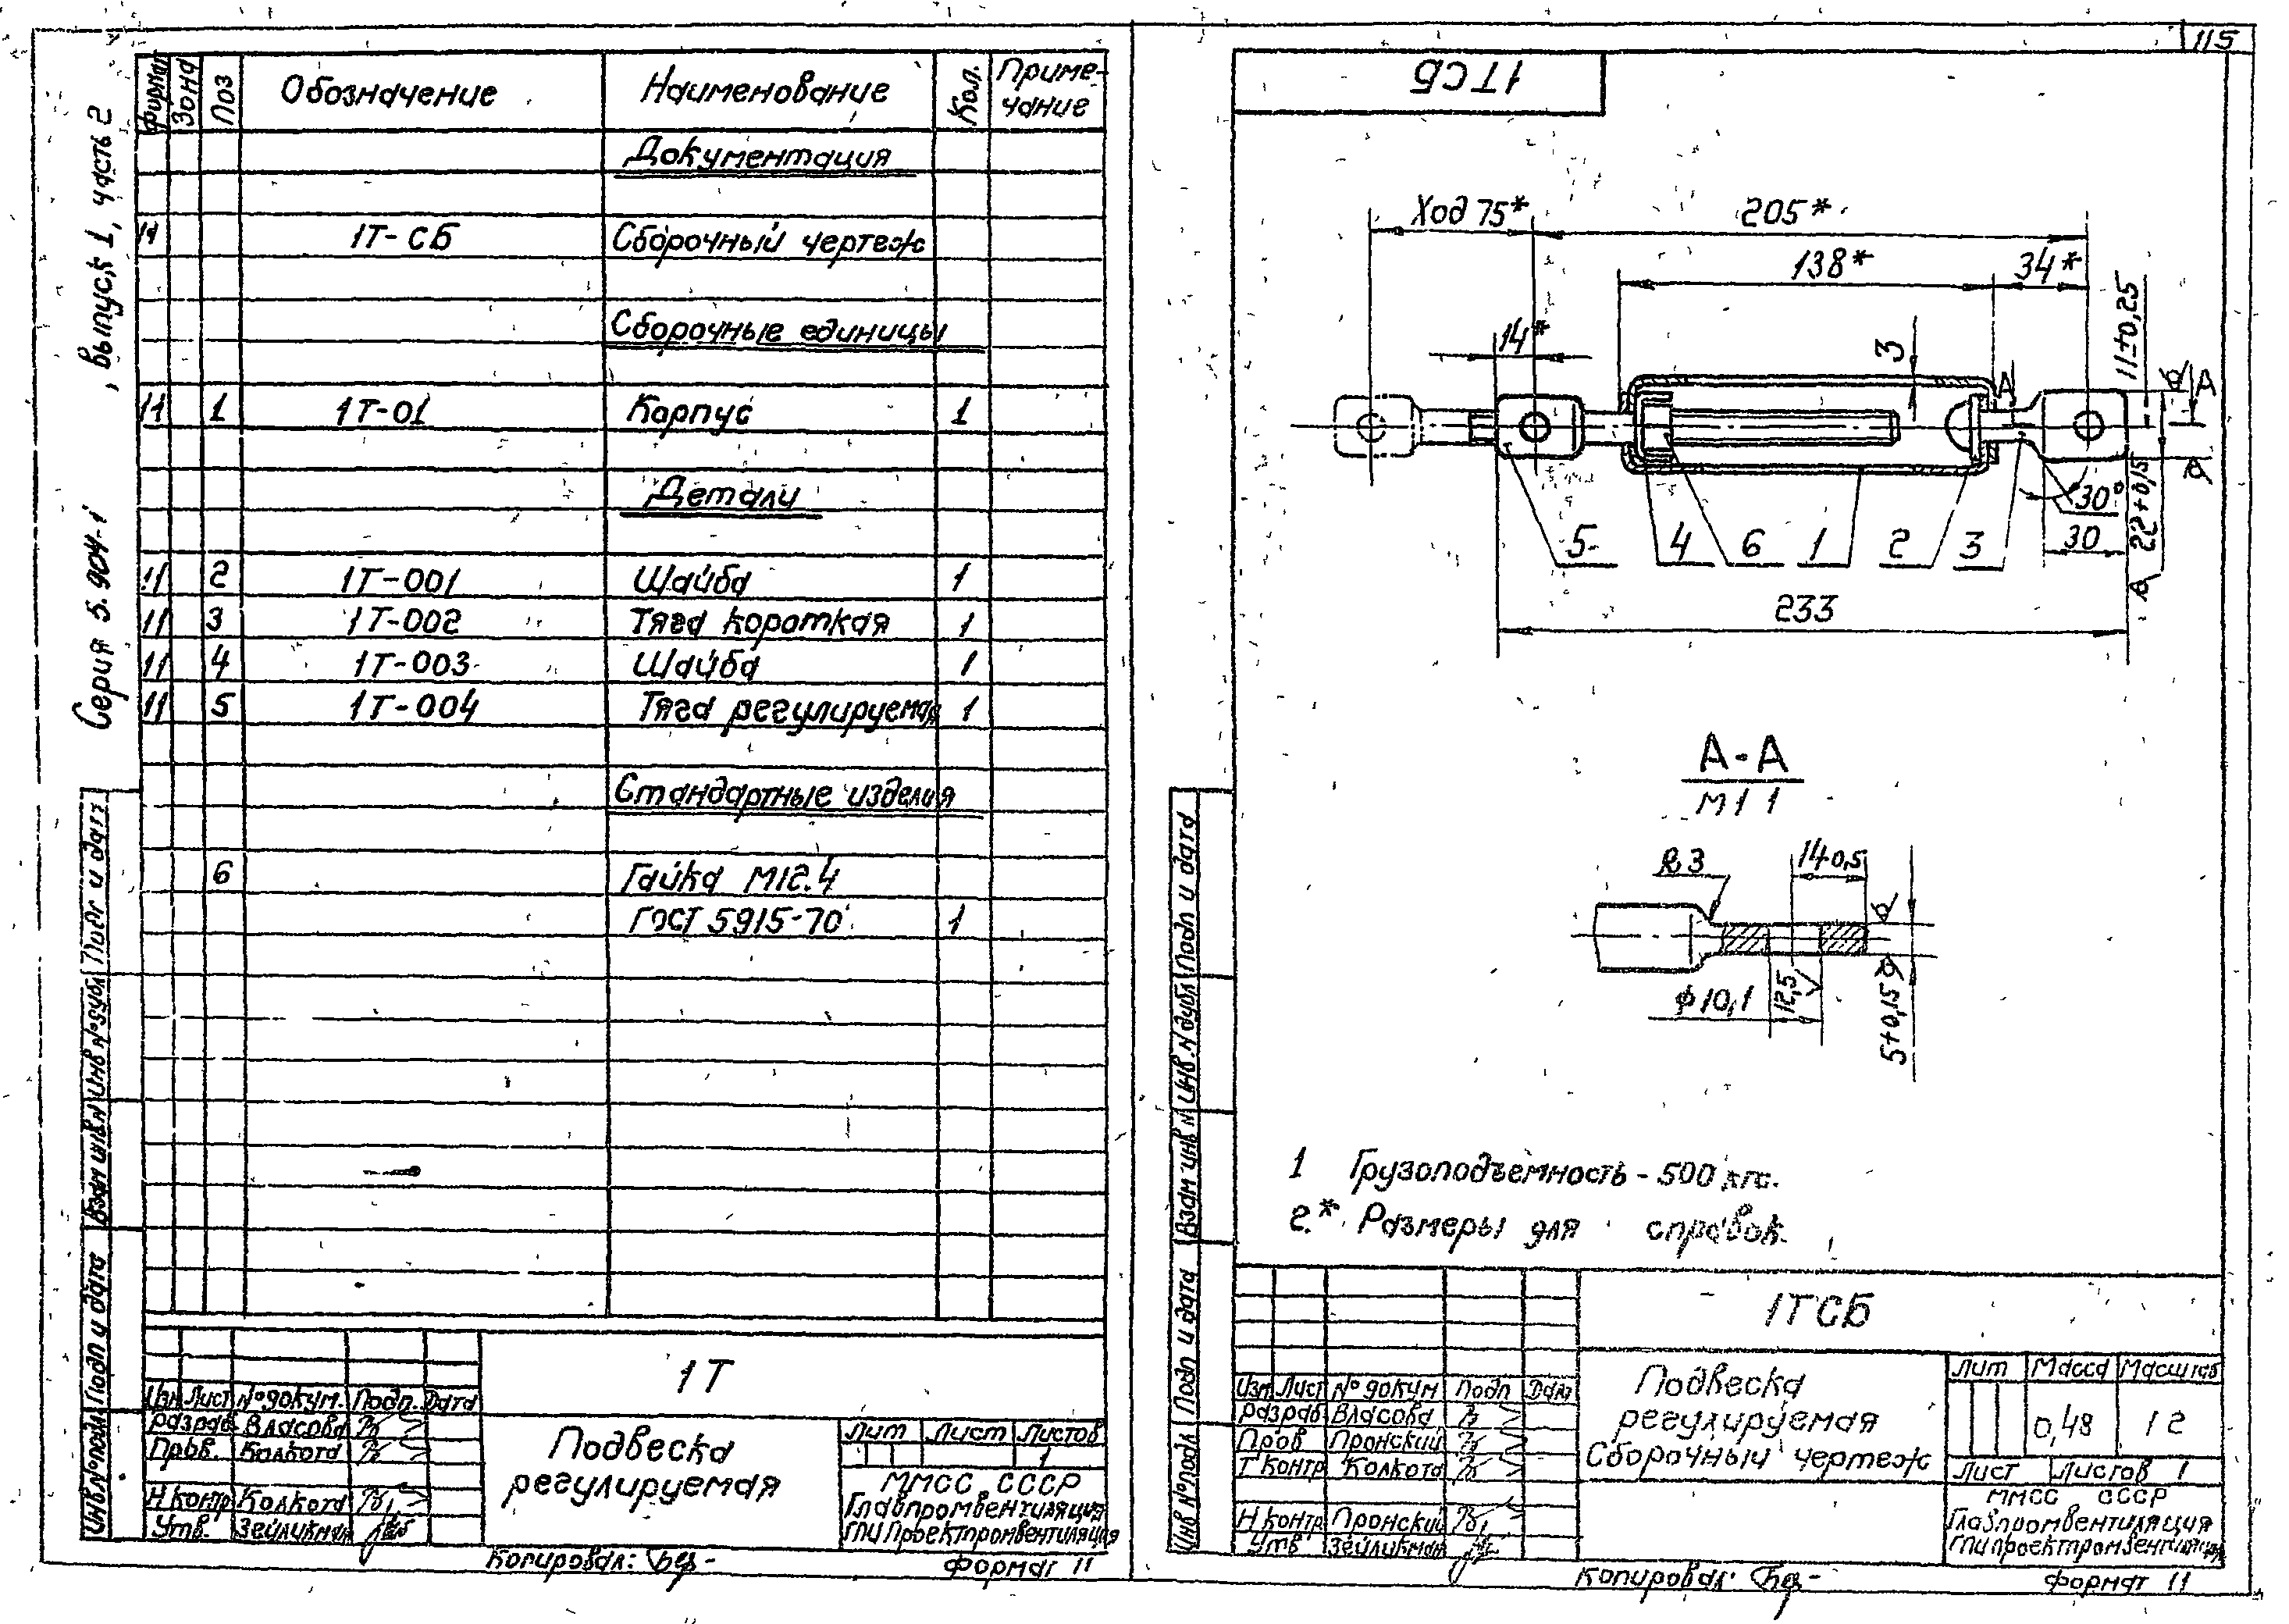 115
Серия 5.904-1, выпуск 1, часть 2
Формат Зона Поз Обозначение Наименование Кол. Приме-
чание
Документация
11 1Т-СБ Сборочный чертеж
Сборочные единицы
11 1 1Т-01 Корпус 1
Детали
11 2 1Т-001 Шайба 1
11 3 1Т-002 Тяга короткая 1
11 4 1Т-003 Шайба 1
11 5 1Т-004 Тяга регулируемая 1
Стандартные изделия
6 Гайка М12.4
ГОСТ 5915-70 1
Подп и дата
Инв №дубл
Взам инв №
Подп и дата
Инв №подл
1Т
Изм Лист №докум. Подп. Дата
Разраб. Власова
Пров. Колкота
Н контр Колкота
Утв. Зейликман
Подвеска
регулируемая
Лит Лист Листов
1
ММСС СССР
Главпромвентиляция
ГПИ Проектпромвентиляция
Копировал:
Формат 11
1ТСБ
Ход 75* 205*
138* 34*
14* 3 11±0,25
А А
30°
30 22+0,15
5 4 6 1 2 3
233
А-А
М1 1
R3 14 0,5
ф10,1 12,5 5+0,15
1 Грузоподъемность - 500 кгс.
2.* Размеры для справок.
Подп и дата
Инв. № дубл
Взам инв №
Подп и дата
Инв №подл
1ТСБ
Изм Лист №докум Подп Дата
Разраб Власова
Пров Пронский
Т контр Колкота
Н контр Пронский
Утв Зейликман
Подвеска
регулируемая
Сборочный чертеж
Лит Масса Масштаб
0,48 1 2
Лист Листов 1
ММСС СССР
Главпромвентиляция
ГПИ проектпромвентиляция
Копировал:
Формат 11